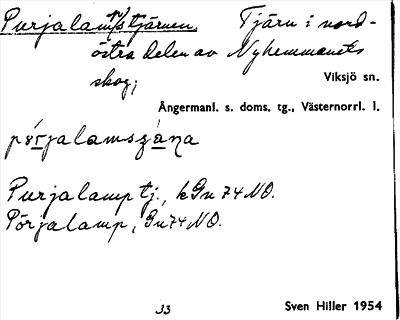 Purjalam(p)stjärnen. Tjärn i nord-
östra delen av Nyhemmanets
skog;
Viksjö sn.
Ångermanl. s. doms. tg., Västernorrl. l.
Purjalamp tj., kGn 74 NO.
Pörjalamp, Gn 74 NO.
33
Sven Hiller 1954